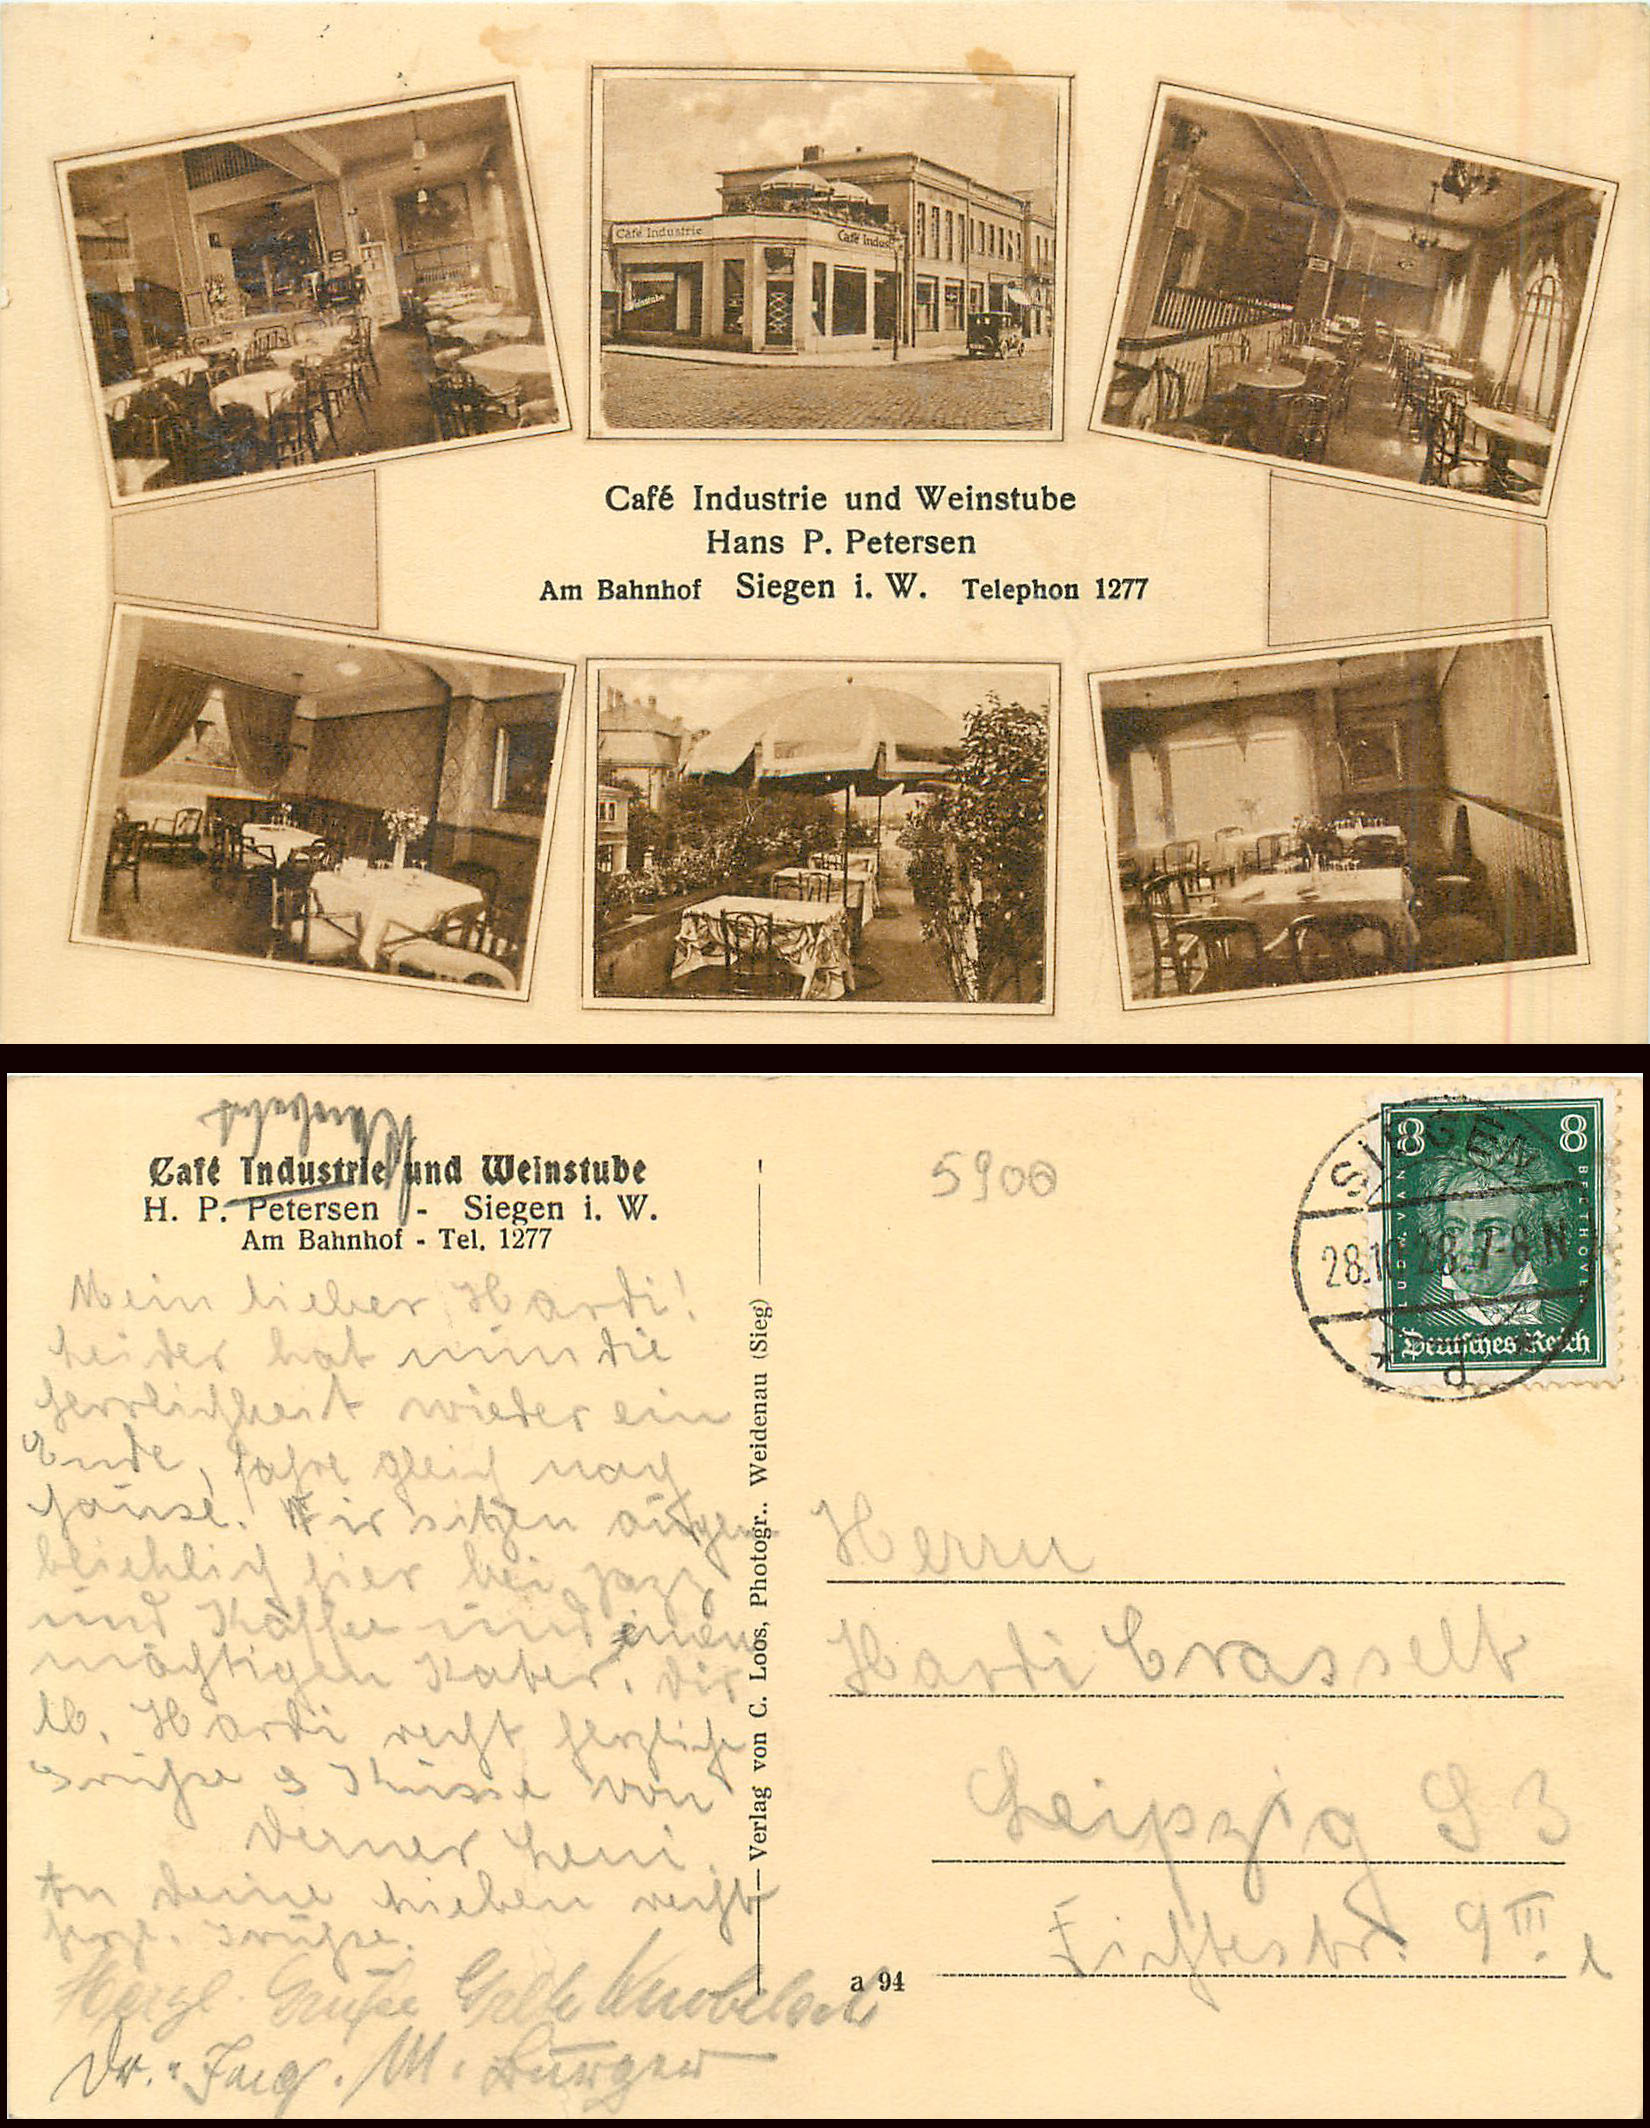 Café Industrie
Café Indus
Weinstube
Café Industrie und Weinstube
Hans P. Petersen
Am Bahnhof Siegen i. W. Telephon 1277
Café Industrie und Weinstube
H. P. Petersen - Siegen i. W.
Am Bahnhof - Tel. 1277
Mein lieber Hardi!
Leider hat nun die
Herrlichkeit wieder ein
Ende, fahre gleich nach
Hause. Wir sitzen augen-
blicklich hier bei Jazz
und Kaffee und einen
mächtigen Kater. Dir
lb. Hardi recht herzliche
Grüße & Küsse von
Deiner Leni.
An Deine Lieben recht
herzl. Grüße.
Herzl. Grüße
Dr.-Ing. M. Burger
Verlag von C. Loos, Photogr.. Weidenau (Sieg)
5900
8 8
LUDW. VAN BEETHOVEN
Deutsches Reich
SIEGEN
28.10.28. 7-8 N
* d *
Herrn
Hardi Crasselt
Leipzig S 3
Fichtestr. 9 III. l
a 94